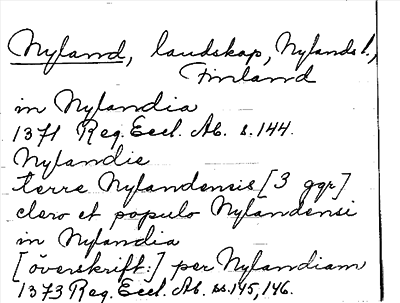 Nyland, landskap, Nylands l.,
Finland
in Nylandia
1371 Reg. Eccl. Ab. s. 144.
Nylandie
terre Nylandensis [3 ggr]
clero et populo Nylandensi
in Nylandia
[överskrift:] per Nylandiam
1373 Reg. Eccl. Ab. ss. 145, 146.